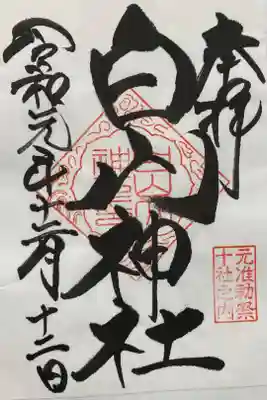 奉拝
白山神社
元准勅祭
十社之内
令和元年十二月
十二日